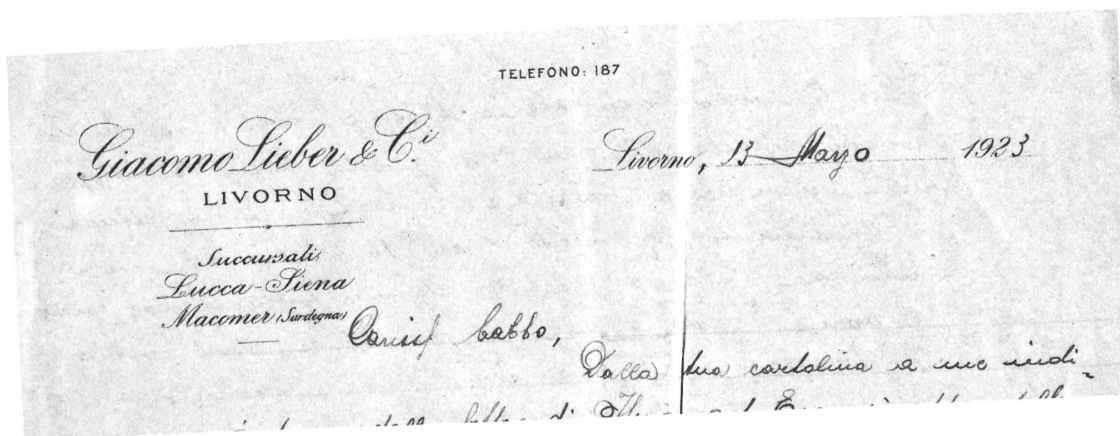 TELEFONO: 187
Giacomo Lieber & C.i
LIVORNO
Succursali
Lucca-Siena
Macomer (Sardegna)
Livorno, 13 Marzo 1923
Cariss babbo,
Dalla tua cartolina a me indi-
dalla lettera di